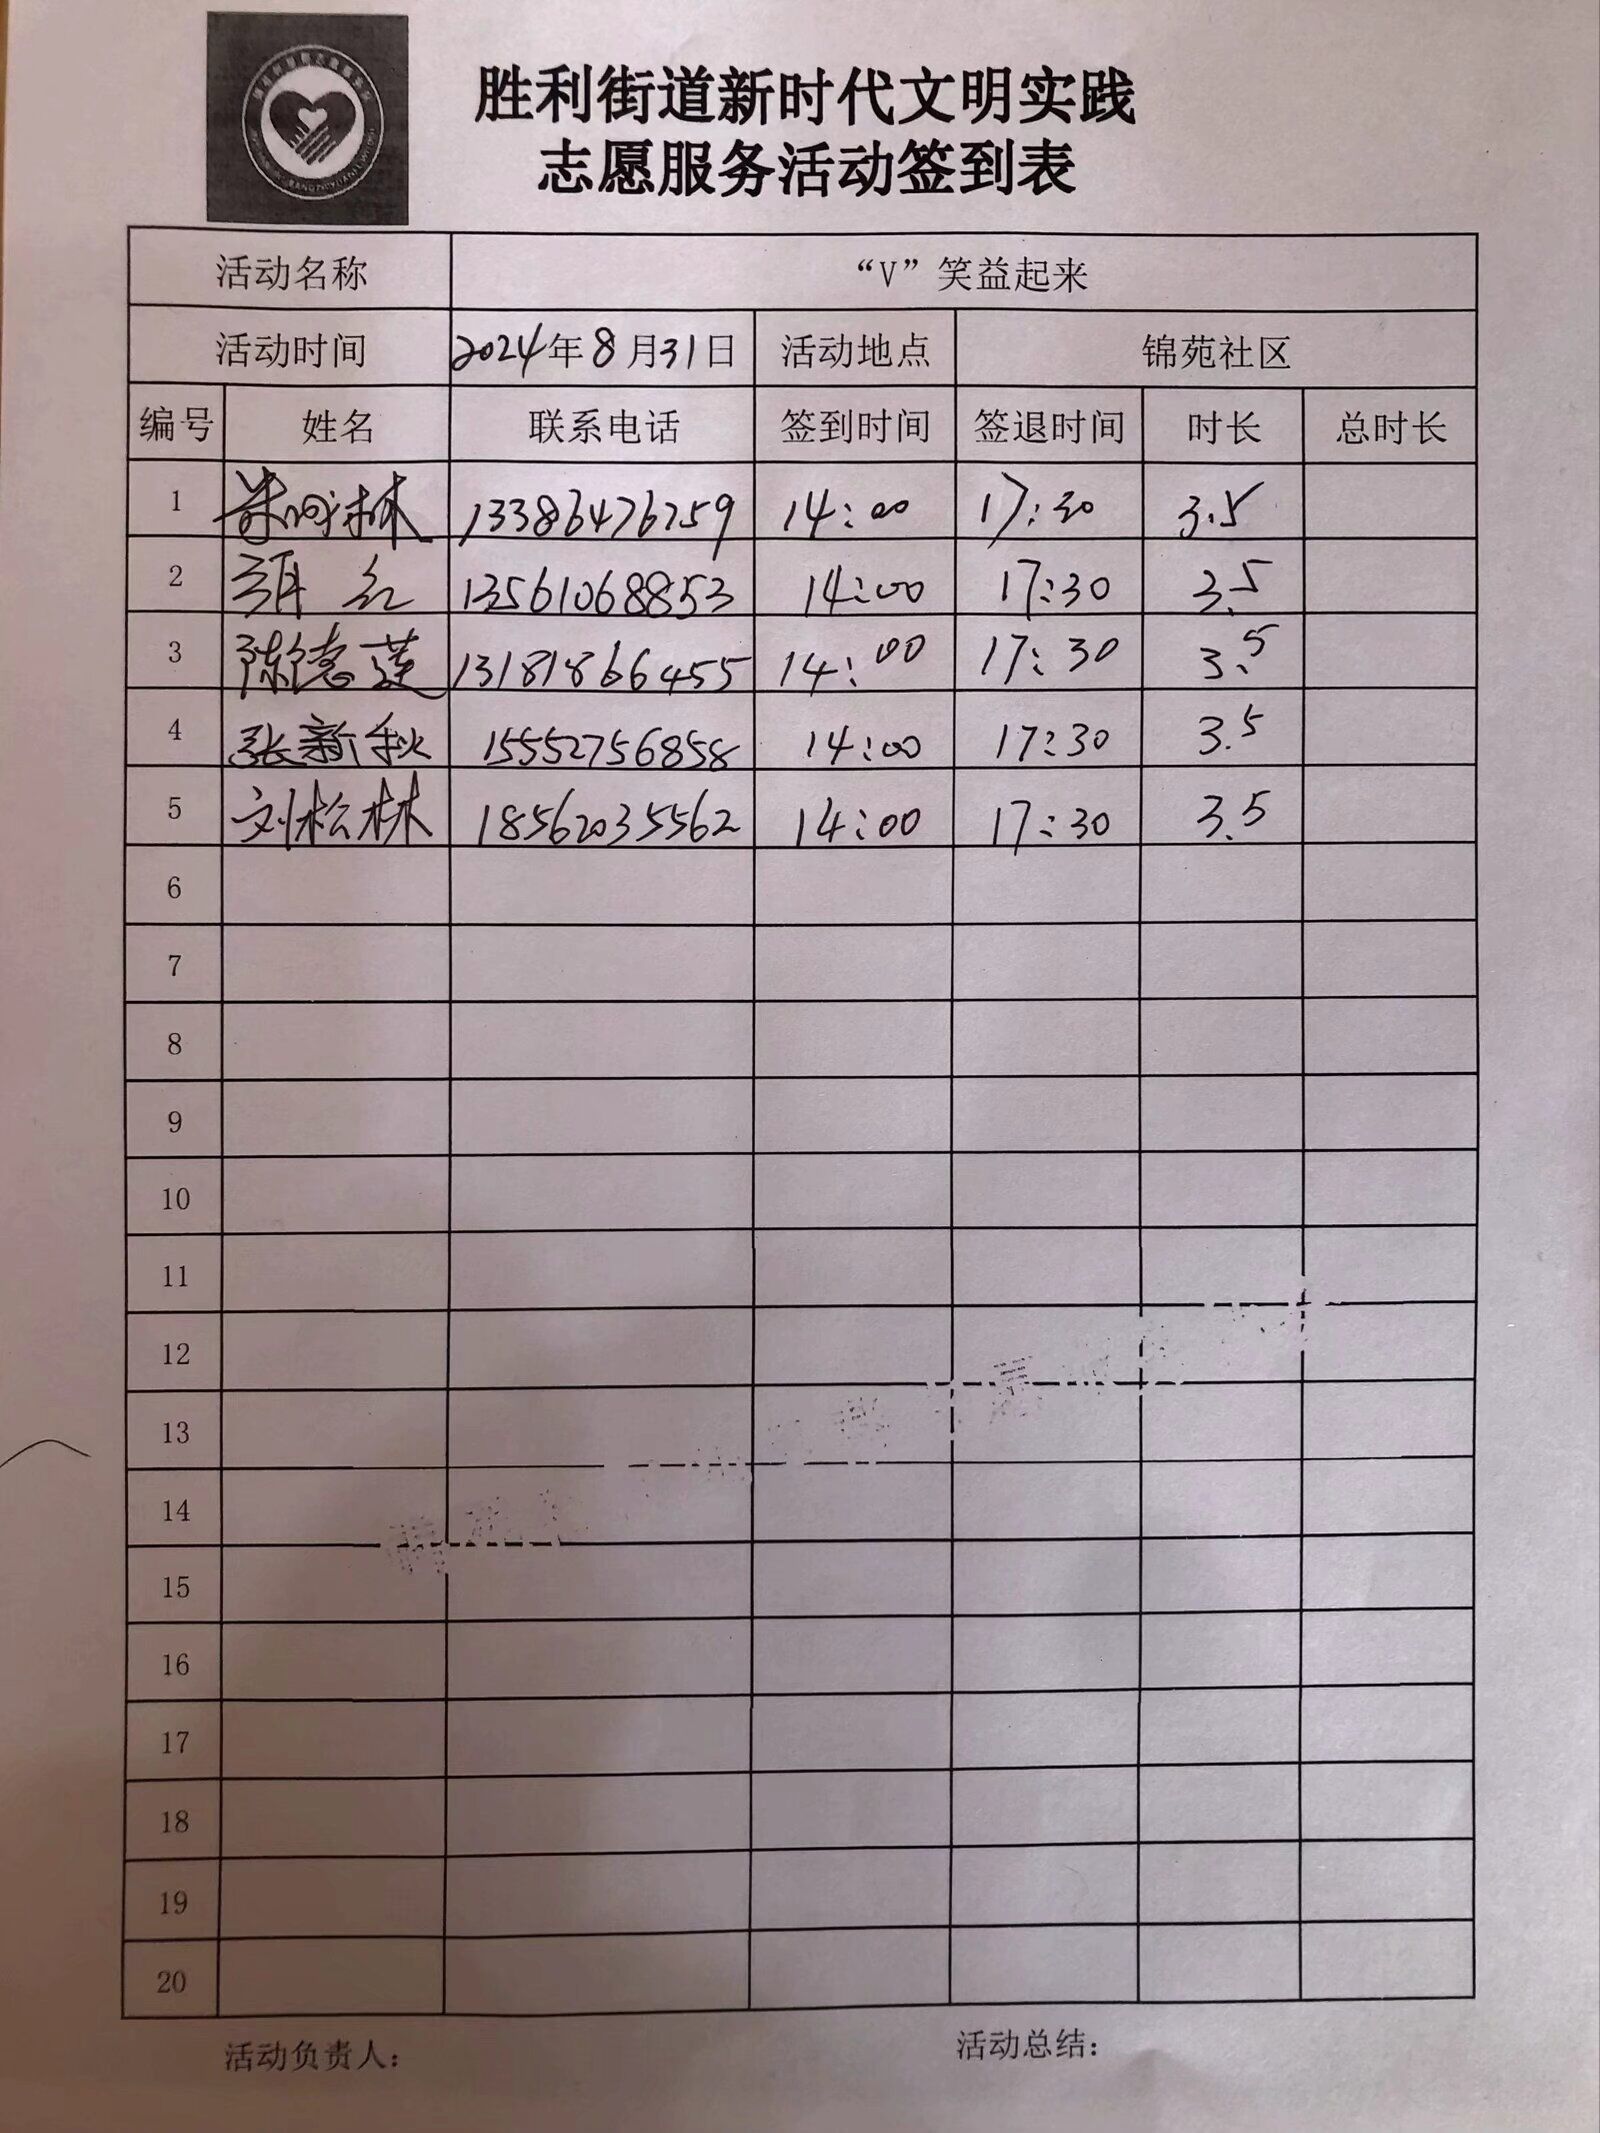 胜利街道新时代文明实践
志愿服务活动签到表
活动名称 “V”笑益起来
活动时间 2024年8月31日 活动地点 锦苑社区
编号 姓名 联系电话 签到时间 签退时间 时长 总时长
1 林 13386476259 14:00 17:30 3.5
2 红 13561068853 14:00 17:30 3.5
3 陈德莲 13181866455 14:00 17:30 3.5
4 张新秋 15552756858 14:00 17:30 3.5
5 刘松林 18562035562 14:00 17:30 3.5
6
7
8
9
10
11
12
13
14
15
16
17
18
19
20
活动负责人: 活动总结: